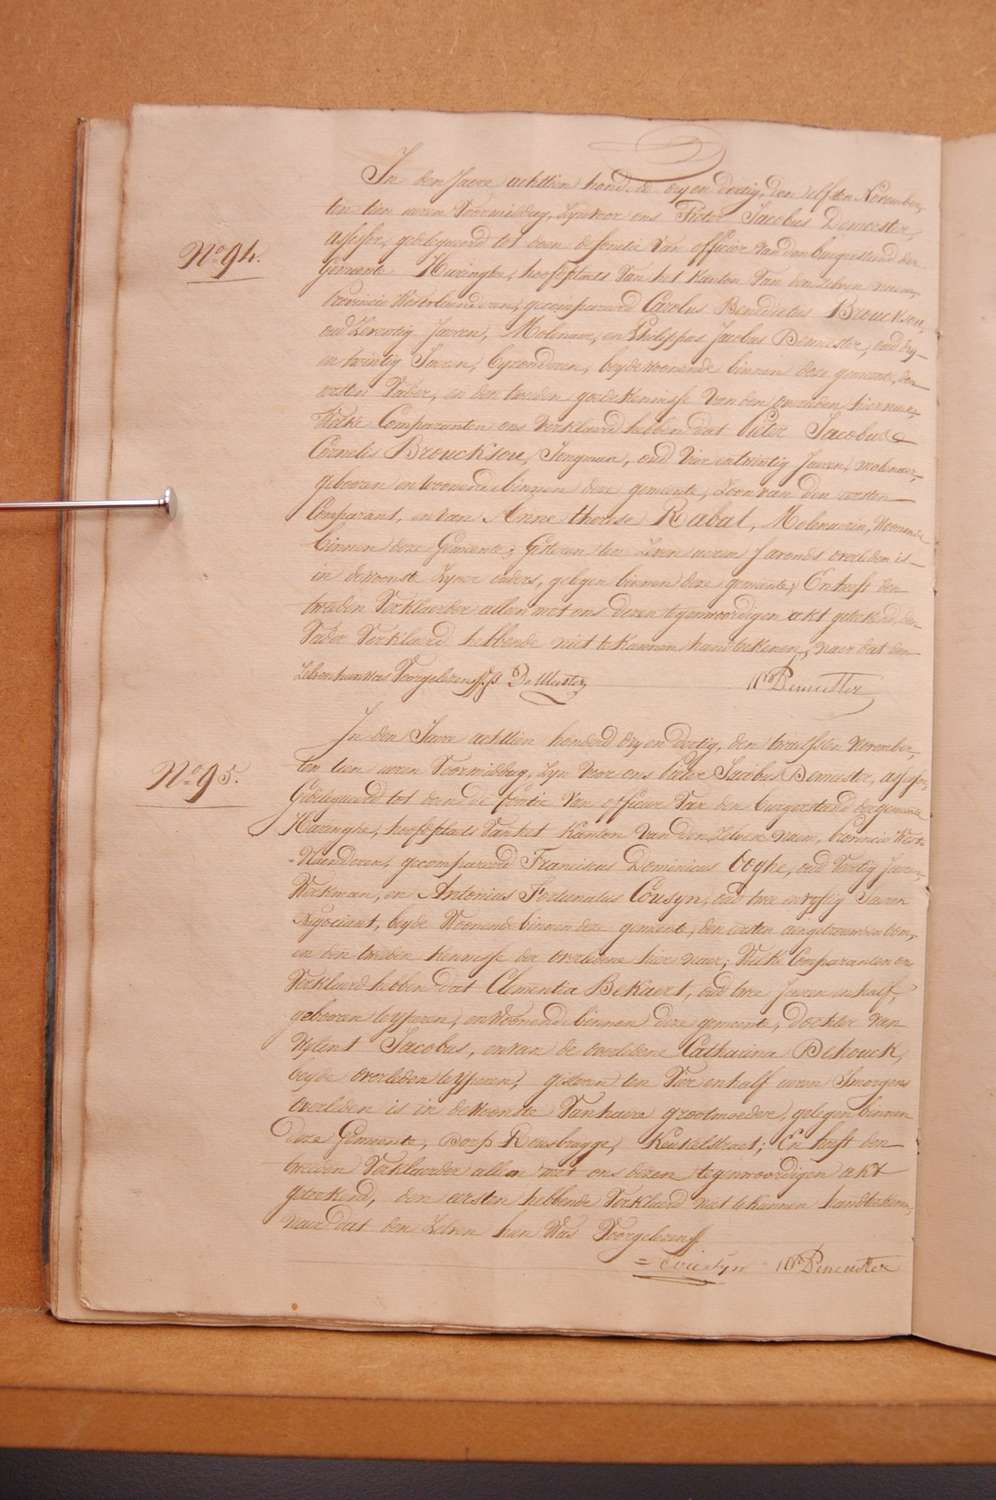 In den Jaere achttien honderd dry en dertig, den elfsten November,
ten tien uren Voormiddag, Zyn voor ons Pieter Jacobus Demeester,
Assessor, gedelegueerd tot de functie van officier van den burgerstand der
No. 94.
Gemeente Haringhe, hoofdplaets van het kanton van den Zelven naem,
Provincie Westvlaenderen, gecompareerd Carolus Benedictus Brouckson,
oud Zeventig Jaeren, Molenaer, en Philippus Jacobus Demeester, oud dry-
en twintig Jaeren, byzonderen, beyde woonende binnen deze gemeente, den
eersten Vader, en den tweeden goede kennisse van den overleden hiernaer,
Welke Comparanten ons verklaerd hebben dat Pieter Jacobus
Cornelis Brouckson, Jongman, oud Vier en twintig Jaeren, molenaer,
geboren en woonende binnen deze gemeente, Zoon van den eersten
Comparant, en van Anne therese Rabat, Molenaerin, Woonende
binnen deze Gemeente, Gisteren ten Zeven uren s'avonds overleden is
in de woonste Zyner ouders, gelegen binnen deze gemeente; En heeft den
tweeden Verklaerder allen met ons dezen tegenwoordigen akt geteekend, den
Vader Verklaerd hebbende niet te kunnen handteekenen, naer dat den
Zelven hun was Voorgelezen. Demeester PJ Demeester
In den Jaere achttien honderd dry en dertig, den twaelfsten November,
ten tien uren Voormiddag, Zyn voor ons Pieter Jacobus Demeester, assessor,
No. 95.
Gedelegueerd tot de functie van officier van den burgerstand der gemeente
Haringhe, hoofdplaets van het Kanton van den Zelven naem, Provincie West-
-Vlaenderen, gecompareerd Franciscus Dominicus Coghe, oud Veertig Jaeren,
Werkman, en Antonius Fortunatus Cousyn, oud twee en vyftig Jaeren
Negociant, beyde Woonende binnen deze gemeente, den eersten aengetrouwden oom,
en den tweeden kennisse der overledene hier naer; Welke Comparanten ons
Verklaerd hebben dat Clementia Bekaert, oud twee Jaeren en half,
geboren te Yperen, en Woonende binnen deze gemeente, dochter van
Wylent Jacobus, en van de overledene Catharina Dekouck,
beyde overleden te Yperen, gisteren ten Vier en half uren s'morgens
overleden is in de woonste van haere grootmoeder, gelegen binnen
deze Gemeente, Dorp Rousbrugge, Kuikelstraet; En heeft den
tweeden Verklaerder allen met ons dezen tegenwoordigen akt
geteekend, den eersten hebbende Verklaerd niet te kunnen handteekenen,
naer dat den Zelven hun Was Voorgelezen.
= Cousyn PJ Demeester